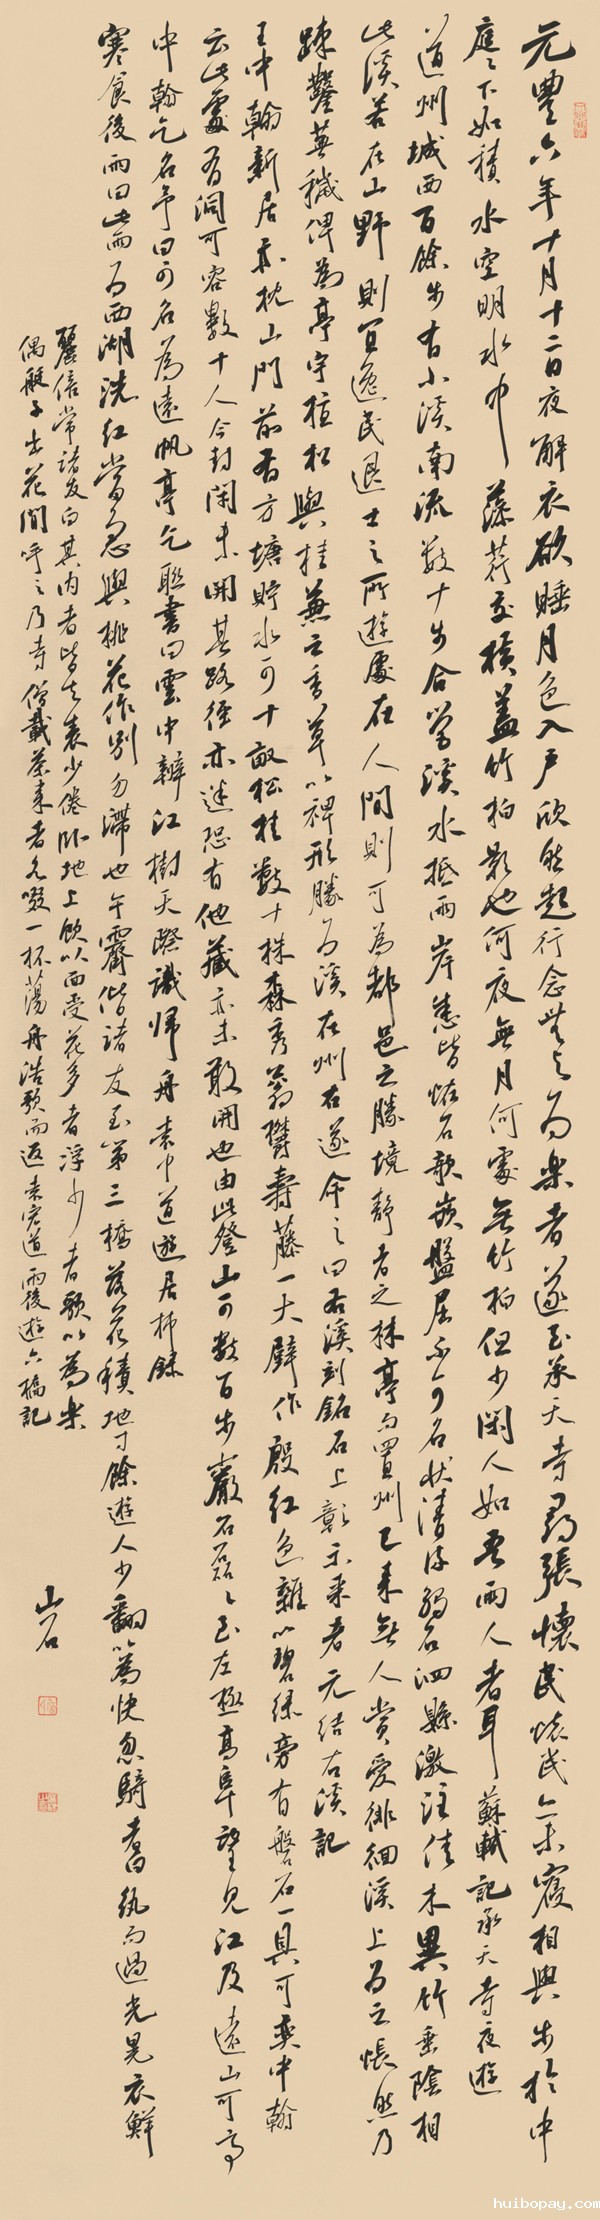 元豐六年十月十二日夜解衣欲睡月色入戶欣然起行念無與為樂者遂至承天寺尋張懷民懷民亦未寢相與步於中
庭庭下如積水空明水中藻荇交橫蓋竹柏影也何夜無月何處無竹柏但少閑人如吾兩人者耳 蘇軾記承天寺夜遊
道州城西百餘步有小溪南流數十步合營溪水抵兩岸悉皆怪石欹嵌盤屈不可名狀清流觸石洄懸激注佳木異竹垂陰相
此溪若在山野則宜逸民退士之所遊處在人間則可為都邑之勝境靜者之林亭而置州已來無人賞愛徘徊溪上為之悵然乃
疎鑿蕪穢俾為亭宇植松與桂兼之香草以裨形勝為溪在州右遂命之曰右溪刻銘石上彰示來者 元結右溪記
王中翰新居亦枕山門前有方塘貯水可十畝松桂數十株森秀蓊鬱壽藤一大壁作殷紅色雜以碧綠旁有磐石一具可奕中翰
云此處有洞可容數十人今封閑未開其路徑亦迷恐有他藏亦未敢開也由此登山可數百步巖石磊磊至左極高阜望見江及遠山可亭
中翰乞名予曰可名為遠帆亭乞聯書曰雲中辨江樹天際識歸舟 袁中道遊居柿錄
寒食後雨曰此雨為西湖洗紅當急與桃花作別勿滯也午霽偕諸友至第三橋落花積地寸餘遊人少翻以為快忽騎者白紈而過光晃衣鮮
麗倍常諸友白其內者皆去表少倦臥地上飲以面受花多者浮少者歌以為樂
偶艇子出花間呼之乃寺僧載茶來者各啜一杯蕩舟浩歌而返 袁宏道雨後遊六橋記
山石
huibopay.com